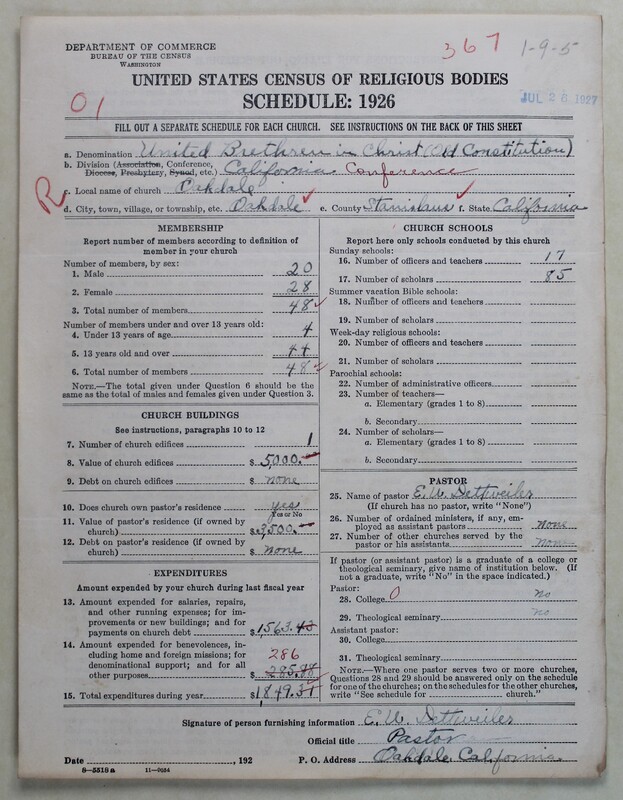 DEPARTMENT OF COMMERCE
BUREAU OF THE CENSUS
WASHINGTON
367
1-9-5
UNITED STATES CENSUS OF RELIGIOUS BODIES
SCHEDULE: 1926
01
JUL 26 1927
FILL OUT A SEPARATE SCHEDULE FOR EACH CHURCH. SEE INSTRUCTIONS ON THE BACK OF THIS SHEET
a. Denomination United Brethren in Christ (Old Constitution)
b. Division (Association, Conference, Diocese, Presbytery, Synod, etc.) California Conference
R
c. Local name of church Oakdale
d. City, town, village, or township, etc. Oakdale e. County Stanislaus f. State California
MEMBERSHIP
Report number of members according to definition of member in your church
Number of members, by sex:
1. Male 20
2. Female 28
3. Total number of members 48
Number of members under and over 13 years old:
4. Under 13 years of age 4
5. 13 years old and over 44
6. Total number of members 48
NOTE.—The total given under Question 6 should be the same as the total of males and females given under Question 3.
CHURCH BUILDINGS
See instructions, paragraphs 10 to 12
7. Number of church edifices 1
8. Value of church edifices $ 5,000.
9. Debt on church edifices $ none
10. Does church own pastor's residence yes
Yes or No
11. Value of pastor's residence (if owned by church) $ 3,500.
12. Debt on pastor's residence (if owned by church) $ none
EXPENDITURES
Amount expended by your church during last fiscal year
13. Amount expended for salaries, repairs, and other running expenses; for improvements or new buildings; and for payments on church debt $ 1,563.43
14. Amount expended for benevolences, including home and foreign missions; for denominational support; and for all other purposes 286 285.88
15. Total expenditures during year $ 1,849.31
CHURCH SCHOOLS
Report here only schools conducted by this church
Sunday schools:
16. Number of officers and teachers 17
17. Number of scholars 85
Summer vacation Bible schools:
18. Number of officers and teachers
19. Number of scholars
Week-day religious schools:
20. Number of officers and teachers
21. Number of scholars
Parochial schools:
22. Number of administrative officers
23. Number of teachers—
a. Elementary (grades 1 to 8)
b. Secondary
24. Number of scholars—
a. Elementary (grades 1 to 8)
b. Secondary
PASTOR
25. Name of pastor E. W. Dettweiler
(If church has no pastor, write "None")
26. Number of ordained ministers, if any, employed as assistant pastors none
27. Number of other churches served by the pastor or his assistants none
If pastor (or assistant pastor) is a graduate of a college or theological seminary, give name of institution below. (If not a graduate, write "No" in the space indicated.)
Pastor:
28. College 0 no
29. Theological seminary no
Assistant pastor:
30. College
31. Theological seminary
NOTE.—Where one pastor serves two or more churches, Questions 28 and 29 should be answered only on the schedule for one of the churches; on the schedules for the other churches, write "See schedule for church."
Signature of person furnishing information E. W. Dettweiler
Official title Pastor
Date , 192 P. O. Address Oakdale California
8—5518a 11—9034